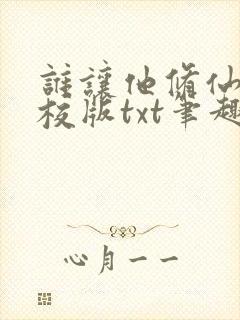 誰讓他脩仙
校版txt筆趣
心月一一